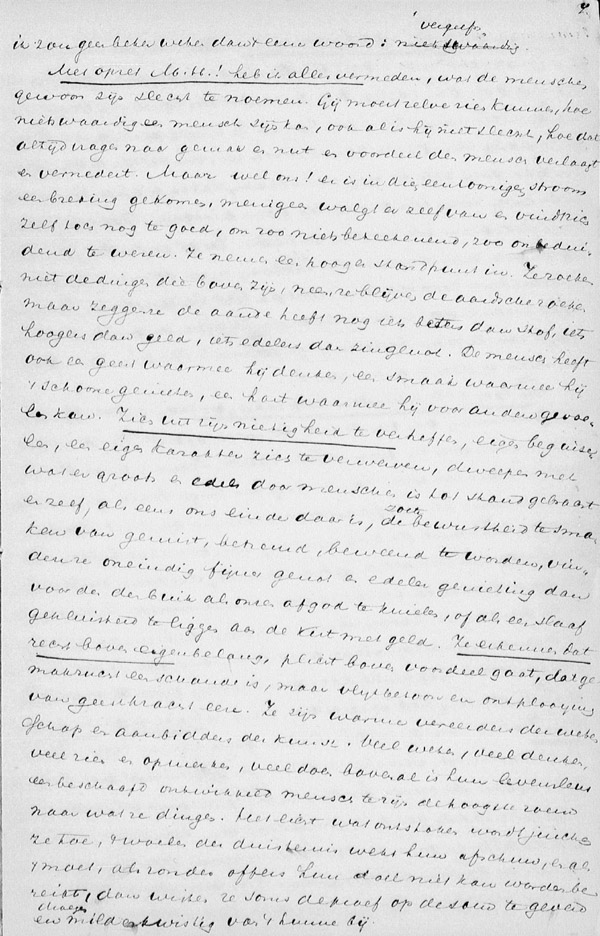 4.
vergeefs
ik zou geen beter weten dan 't eene woord: nietswaardig.
Met opzet M.H.! heb ik alles vermeden, wat de menschen
gewoon zijn slecht te noemen. Gij moest zelve zien kunnen, hoe
nietswaardig een mensch zijn kan, ook al is hij niet slecht, hoe dat
altijd vragen naar gemak en nut en voordeel den mensch verlaagt
en vernedert. Maar wel ons! er is in dien eentoonigen stroom
een breking gekomen, menigeen walgt er zelf van en vindt zich
zelf toch nog te goed, om zoo niets beteekenend, zoo onbedui-
dend te wezen. Ze nemen een hooger standpunt in. Ze zoeken
niet de dingen die boven zijn, neen ze blijven de aardsche zoeken
maar zeggen ze de aarde heeft nog iets beters dan stof, iets
hoogers dan geld, iets edelers dan zingenot. De mensch heeft
ook een geest waarmee hij denken, een smaak waarmee hij
't schoone genieten, een hart waarmee hij voor anderen gevoe-
len kan. Zich uit zijn nietigheid te verheffen, eigen beginse-
len, een eigen karakter zich te verwerven, dweepen met
wat er groots en edels door menschen is tot stand gebracht
en zelf, als eens ons einde daar is, de zoete bewustheid te sma-
ken van gemist, betreurd, beweend te worden, vin-
den ze oneindig fijner genot en edeler genieting dan
voor den buik als onzen afgod te knielen, of als een slaaf
gekluisterd te liggen aan de kist met geld. Ze erkennen dat
recht boven eigenbelang, plicht boven voordeel gaat, dat ge-
makzucht een schande is, maar vlijtbetoon en ontplooiing
van geestkracht eere. Ze zijn warme vereerders der weten-
schap en aanbidders der kunst. Veel weten, veel denken,
veel zien en opmerken, veel doen bovenal is hun levensleus
een beschaafd ontwikkeld mensch te zijn de hoogste roem
naar wat ze dingen. Het licht wat ontstoken wordt juichen
ze toe, 't woelen der duisternis wekt hun afschuw, en als
't moet, als zonder offers hun doel niet kan worden be-
reikt, dan wijken ze soms de proef op de som te geven
en dragen mild en kwistig van 't hunne bij.